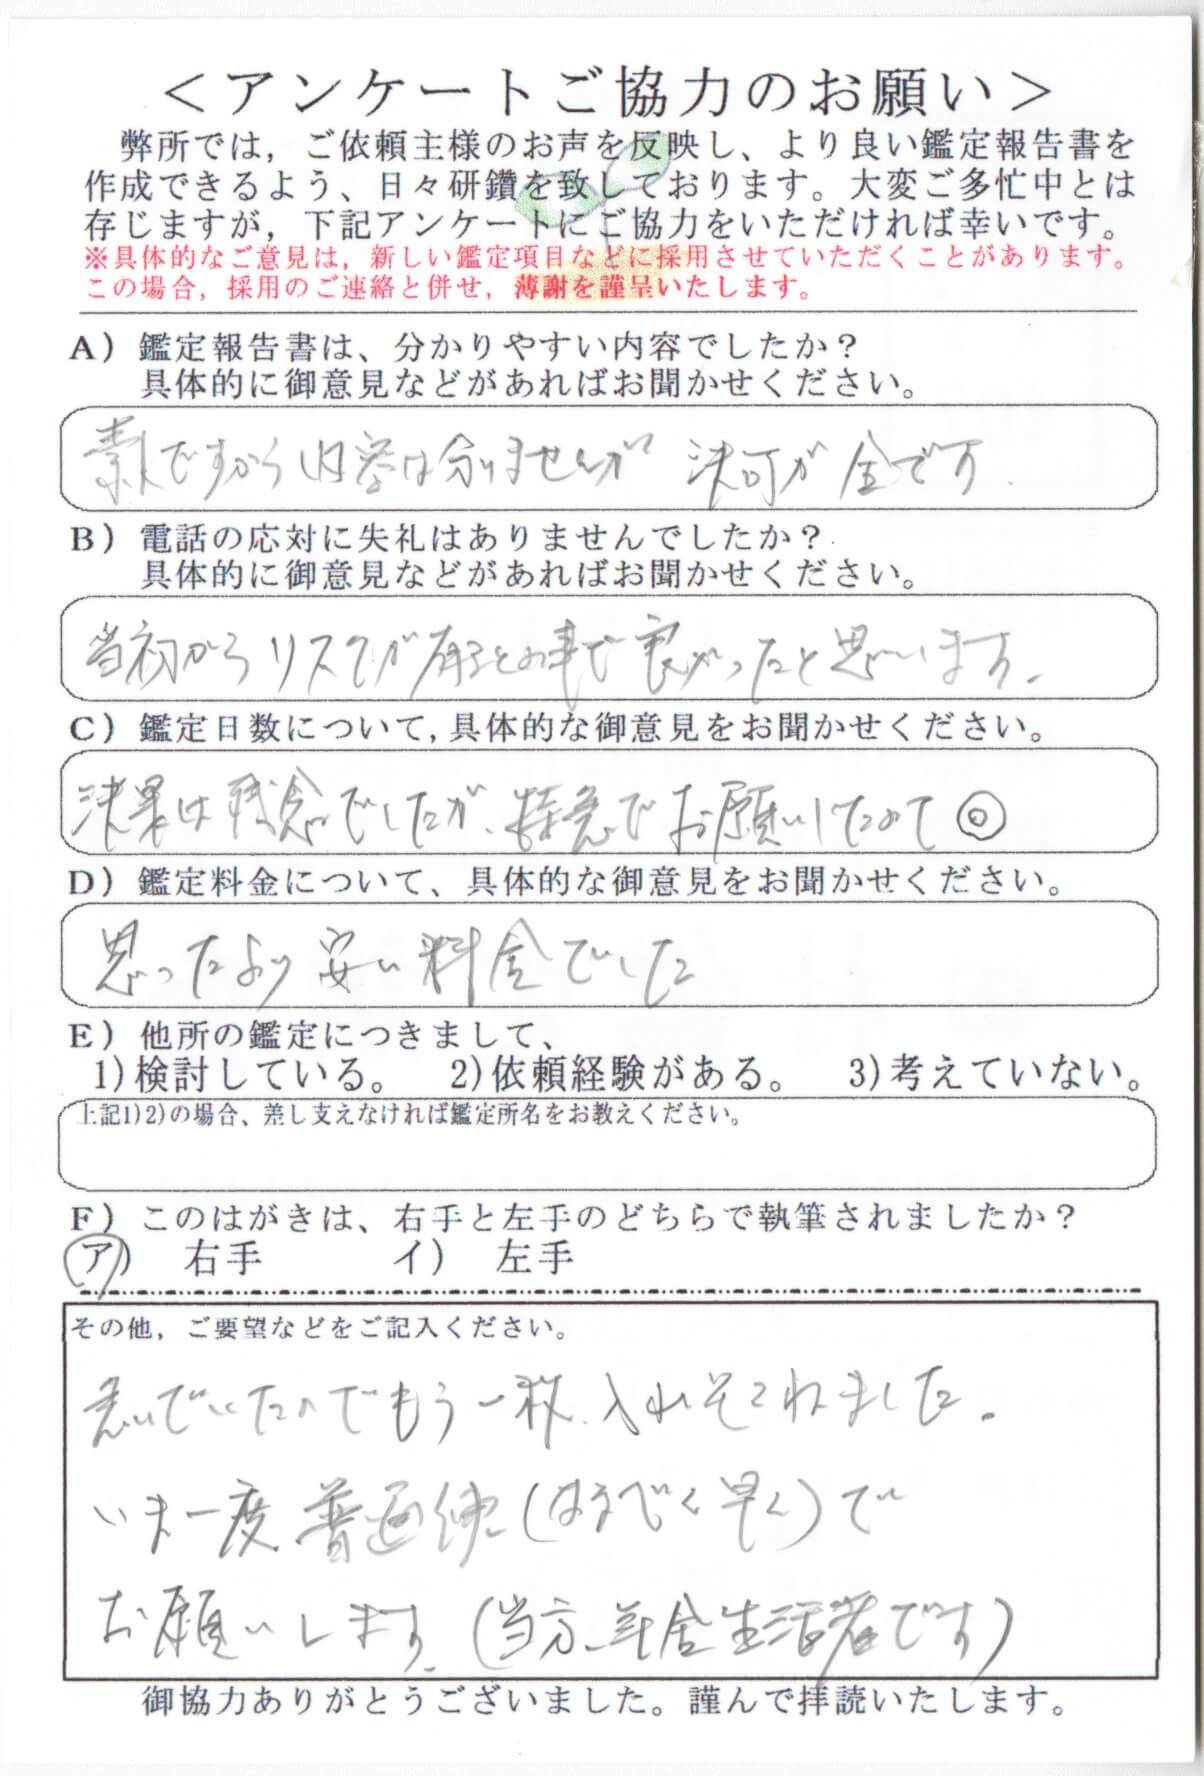 ＜アンケートご協力のお願い＞
弊所では，ご依頼主様のお声を反映し、より良い鑑定報告書を
作成できるよう、日々研鑽を致しております。大変ご多忙中とは
存じますが，下記アンケートにご協力をいただければ幸いです。
※具体的なご意見は，新しい鑑定項目などに採用させていただくことがあります。
この場合，採用のご連絡と併せ，薄謝を謹呈いたします。
A）鑑定報告書は、分かりやすい内容でしたか？
具体的に御意見などがあればお聞かせください。
素人ですから内容は分りませんが 決可が全です．
B）電話の応対に失礼はありませんでしたか？
具体的に御意見などがあればお聞かせください。
当初からリスクが有るとの事で良かったと思います．
C）鑑定日数について，具体的な御意見をお聞かせください。
決果は残念でしたが、特急でお願いしたので◎
D）鑑定料金について、具体的な御意見をお聞かせください。
思ったより安い料金でした
E）他所の鑑定につきまして、
1)検討している。 2)依頼経験がある。 3)考えていない。
上記1)2)の場合、差し支えなければ鑑定所名をお教えください。
F）このはがきは、右手と左手のどちらで執筆されましたか？
ア） 右手 イ） 左手
その他，ご要望などをご記入ください。
急いでいたのでもう一枚、入れそこねました．
いま一度普通便(なるべく早く)で
お願いします．(当方、年金生活者です)
御協力ありがとうございました。謹んで拝読いたします。